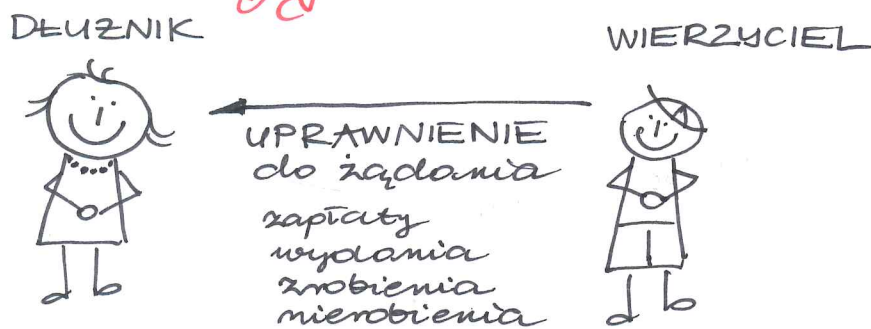 DŁUŻNIK
WIERZYCIEL
UPRAWNIENIE
do żądania
zapłaty
wydania
zrobienia
nierobienia